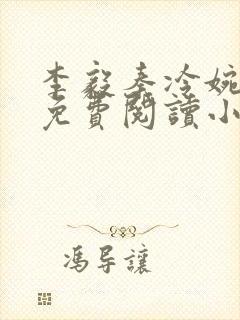 李毅秦冷婉
免費閱讀小
馮导讓